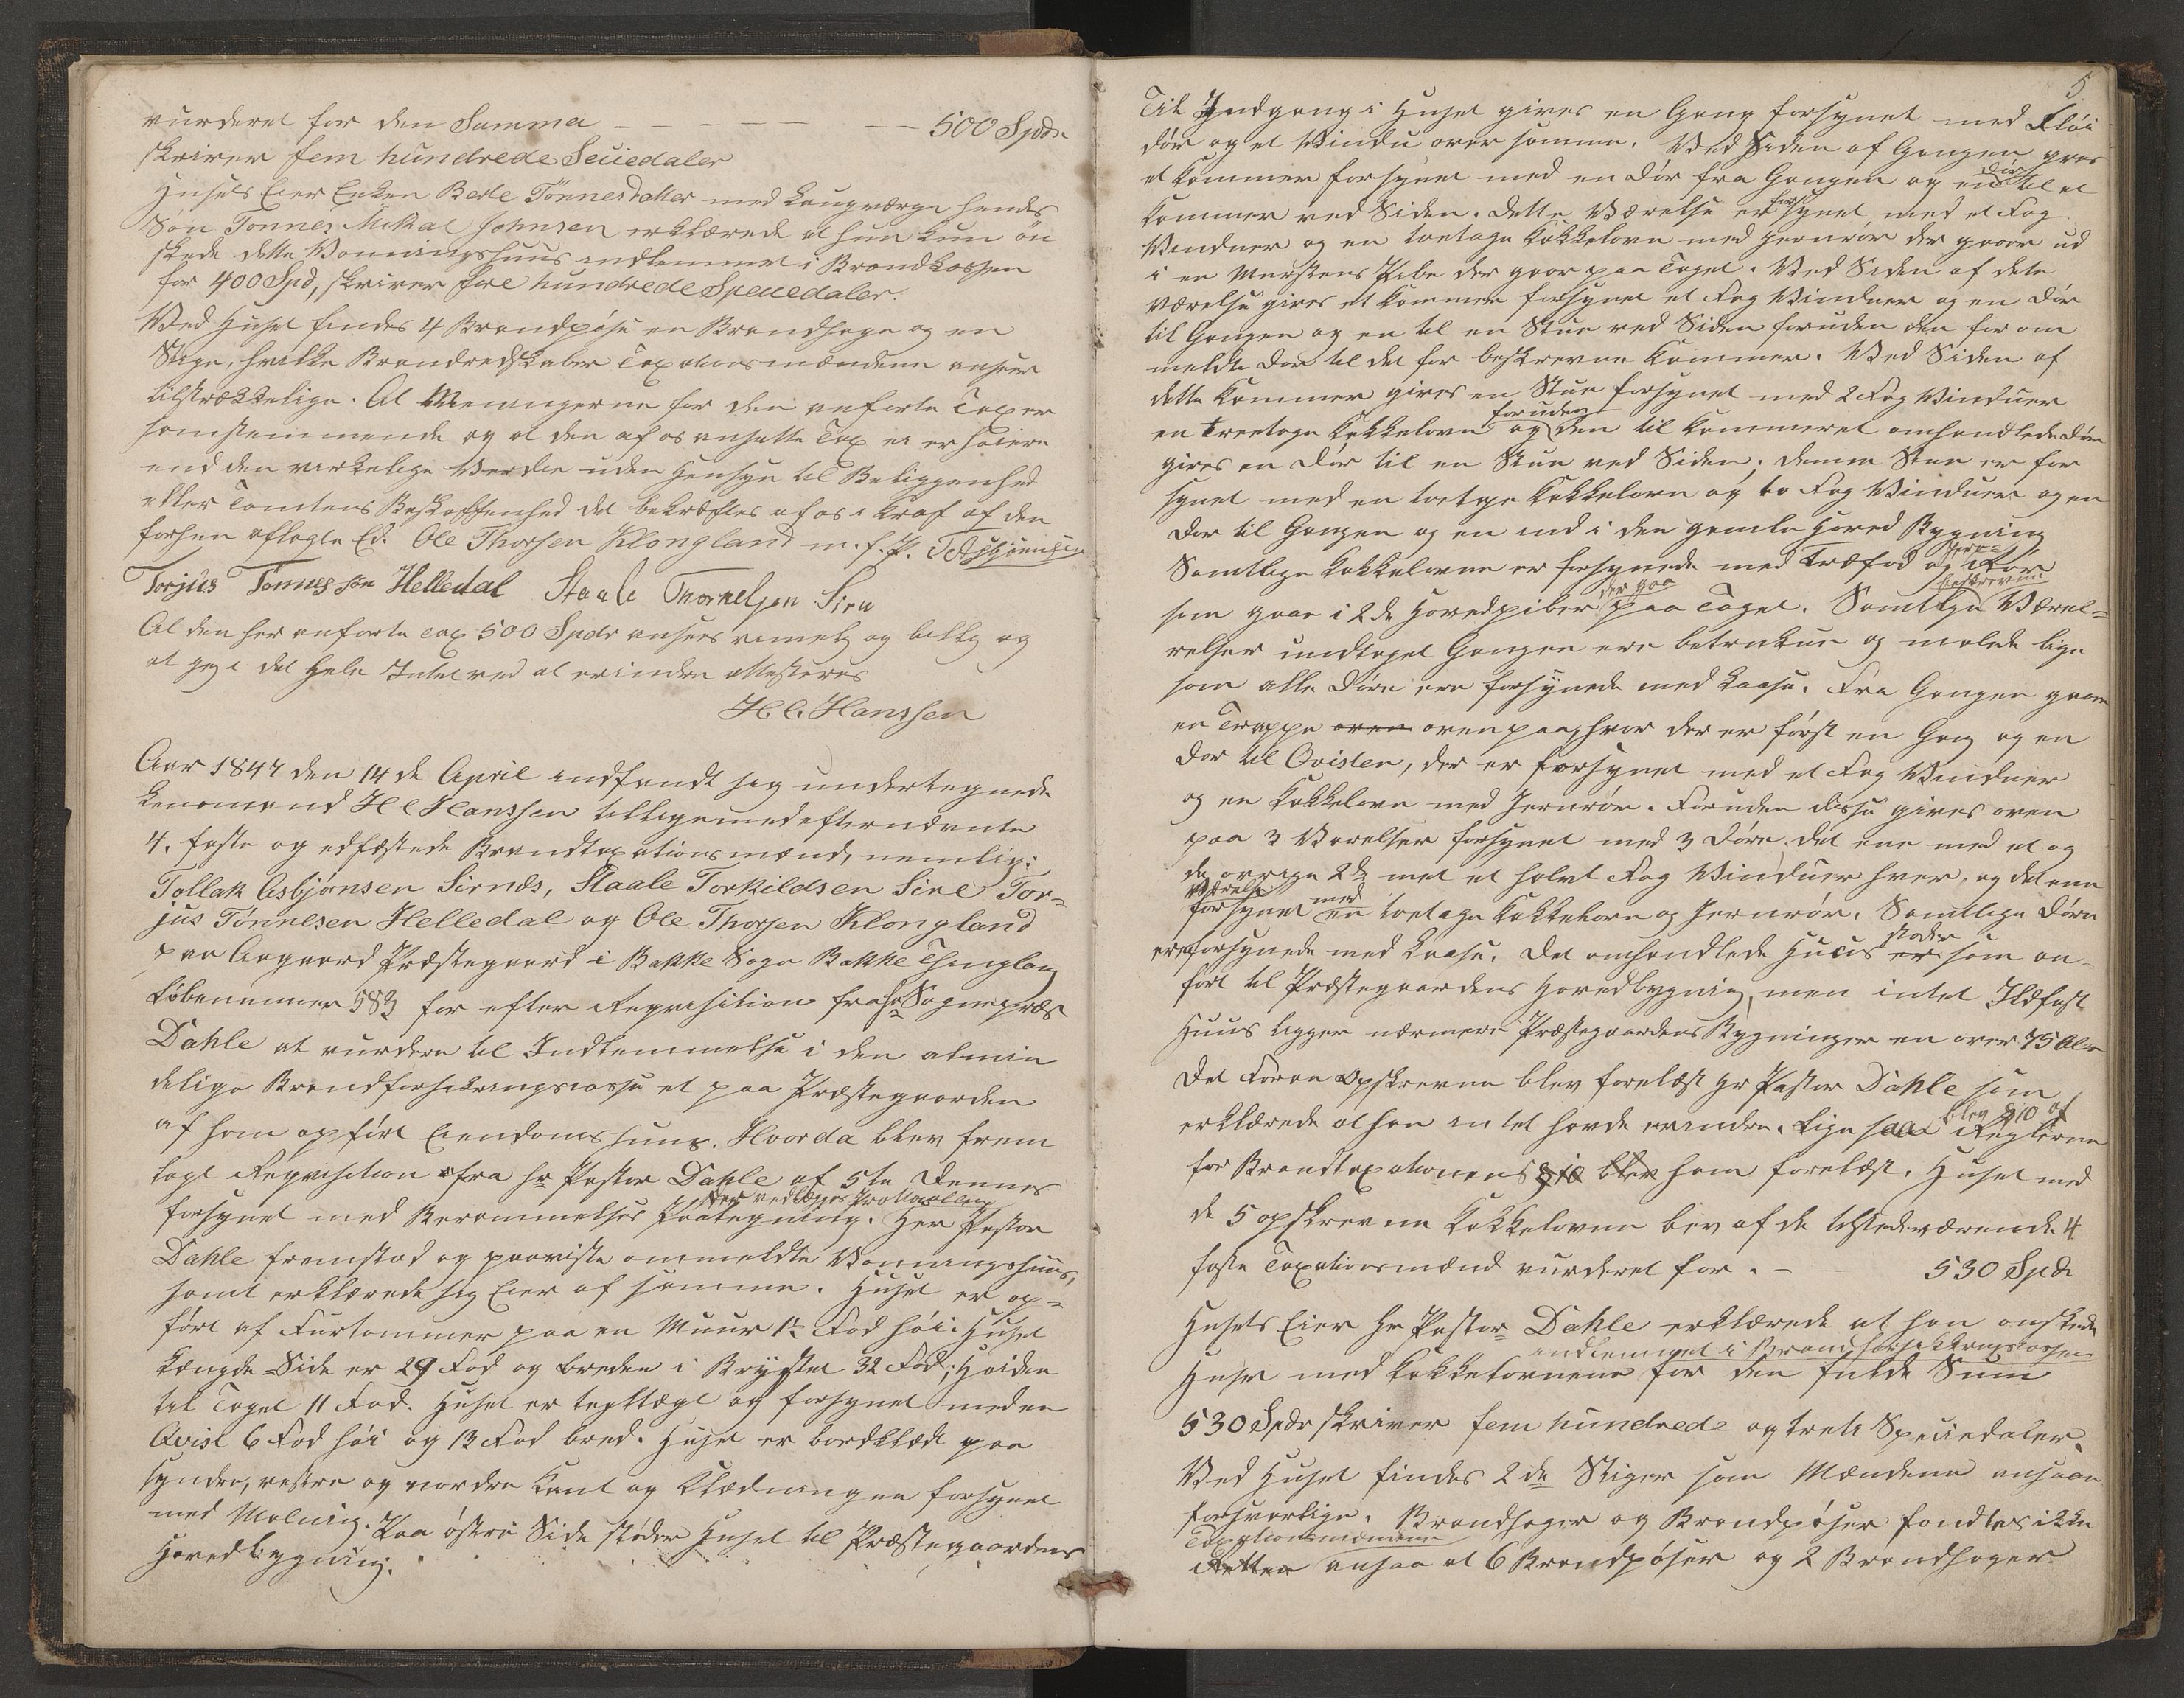 vurderet for den Summa - - - - - - 500 Spdr
skriver fem hundrede Speciedaler
Husets Eier Enken Berte Tönnesdatter med Laugværge hendes
Søn Tönnes Mikal Johnsen erklærede at hun kun ön
skede dette Vaaningshuus indlemmet i Brandkassen
for 400 Spd, skriver fire hundrede Speciedaler.
Ved Huset findes 4 Brandpøse en Brandhage og en
Stige, hvilke Brandredskaber Taxationsmændene anseer
tilstrækkelige. At Meningerne for den anførte Tax er
samstemmende og at den af os ansatte Tax ei er høiere
end den virkelige Værdie uden Hensyn til Beliggenhed
eller Tomtens Beskaffenhed det bekræftes af os i Kraf af den
forhen aflagte Ed. Ole Thorsen Klongland m. f. P. T Asbjörnsen
Torjus Tönnes søn Helledal Staale Thorkelsen Sire
At den her anførte Tax 500 Spdr ansees rimelig og billig og
at jeg i det Hele Intet ved at erindre attesteres
H. C. Hanssen
Aar 1847 den 14de April indfandt sig undertegnede
Lensmand H C Hanssen tilligemed efternævnte
4. faste og edfæstede Brandtaxationsmænd, nemlig:
Tollak Asbjørnsen Sirnæs, Staale Torkildsen Sire Tor-
jus Tönnesen Helledal og Ole Thorsen Klongland
paa Aagaard Præstegaard i Bakke Sogn Bakke Thinglag
Löbenummer 583 for efter Requisition fra Hr Sognepræst
Dahle at vurdere til Indlemmelse i den almin
delige Brandforsikringscasse et paa Præstegaarden
af ham opfört Eiendoms huus. Hvorda blev frem
lagt Requisition fra Hr Pastor Dahle af 5te dennes
forsynet med Berammelses Paategning. der vedlægges Protocollen Her Pastor
Dahle fremstod og paaviste ommeldte Vaaningshuus,
samt erklærede sig Eier af samme. Huset er op-
fört af Furtømmer paa en Muur 1½ Fod høi. Huset
Længde-Side er 29 Fod og breden i Brystet 32 Fod; Høiden
til Taget 11 Fod. Huset er tegltægt og forsynet med en
Qvist 6 Fod høi og 13 Fod bred. Huset er bordklædt paa
syndre, vestre og nordre Kant og Klædningen forsynet
med Maling. Paa östre Side støder Huset til Præstegaardens
Hovedbygning.
5
Til Indgang i Huset gives en Gang forsynet med Fløi
dör og et Vindu over samme. Ved Siden af Gangen gives
et Kammer forsynet med en Dör fra Gangen og en dör til et
Kammer ved Siden. dette Værelse er forsynet med et Fag
Vinduer og en toetages Kakkelovn med Jernrör der gaaer ud
i en Murstens Pibe der gaar paa Taget. Ved Siden af dete
værelse gives et Kammer forsynet et Fag Vinduer og en dör
til Gangen og en til en Stue ved Siden foruden den forom
meldte Dør til det før beskrevne Kammer. Ved Siden af
dette Kammer gives en Stue forsynet med 2 Fag Vinduer
en treetages Kakkelovn og foruden den til Kammeret omhandlede Dör
gives en Dör til en Stue ved Siden; denne Stue er for
synet med en toetages Kakkelovn og to Fag Vinduer og en
Dør til Gangen og en ind i den gamle Hoved Bygning
Samtlige Kakkelovne er forsynede med Træfod og Jern= Rör
som gaar i 2de Hovedpiber der gaa paa Taget. Samtlige beskrevne Værel-
relser undtaget Gangen ere betrukne og malede lige
som alle Döre ere forsynede med Laase. Fra Gangen gaaer
en Trappe oven ovenpaa, hvor der er først en Gang og en
Dør til Qvisten, der er forsynet med et Fag Vinduer
og en Kakkelovn med Jernrör. Foruden disse gives oven
paa 3 Værelser forsynet med 3 Döre. det ene med et og
de øvrige 2de med et halvt Fag Vinduer hver, og det ene
Værelse forsynet med en toetages Kakkelovn og Jernrör. Samtlige döre
ere forsynede med Laase. Det omhandlede Huus er støder som an-
fört til Præstegaardens Hovedbygning, men intet Ildfast
Huus ligger nærmere Præstegaardens Bygninger en over 75 Alen
Det Foran Opskrevne blev forelæst Hr Pastor Dahle som
erklærede at han intet havde erindre. Lige saa blev § 10 af Reglerne
for Brandtaxationens § 10 blev ham forelæst. Huset med
de 5 opskrevne Kakkelovne bev af de tilstedeværende 4
faste Taxationsmænd vurderet for. - 530 Spdr
Husets Eier Hr Pastor Dahle erklærede at han önskede
indlemmet i Brandforsikkringskassen
Huset med Kakkelovnene for den fulde Sum
530 Spdr skriver fem hundrede og treti Speciedaler.
Ved Huset findes 2de Stiger som Mændene ansaae
forsvarlige. Brandhager og Brandpøser fandtes ikke
Taxationsmændene
Retten ansaa at 6 Brandpöser og 2 Brandhager